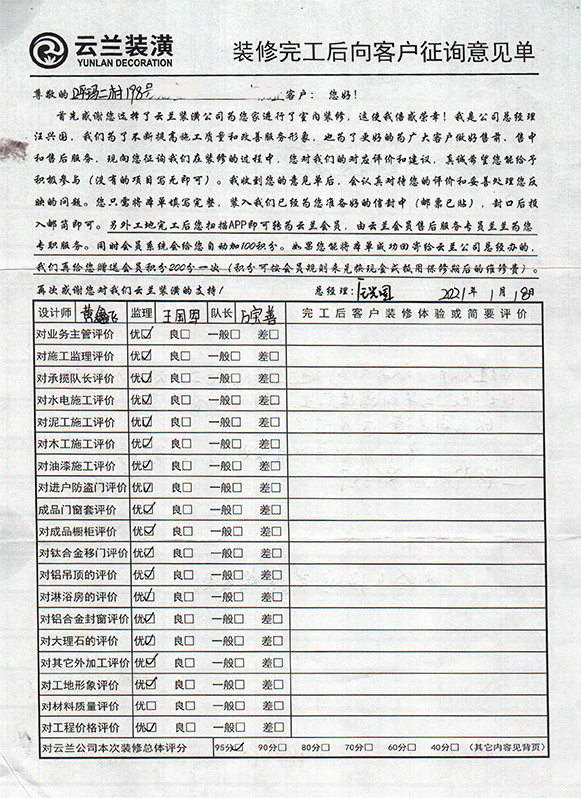 云兰装潢
YUNLAN DECORATION
装修完工后向客户征询意见单
尊敬的呼玛二村198号 客户： 您好！
首先感谢您选择了云兰装潢公司为您家进行了室内装修，这使我倍感荣幸！我是公司总经理
汪兴国，我们为了不断提高施工质量和改善服务形象，也为了更好的为广大客户做好售前、售中
和售后服务，现向您征询我们在装修的过程中，您对我们的对应评价和建议，真诚希望您能给予
积极参与（没有的项目写无即可）。我收到您的意见单后，会认真对待您的评价和妥善处理您反
映的问题。您只需将本单填写完整，装入我们已经为您准备好的信封中（邮票已贴），封口后投
入邮筒即可。另外工地完工后您扫描APP即可转为云兰会员，由云兰会员售后服务专员兰兰为您
专职服务。同时会员系统会给您自动加100积分。如果您能将本单成功回寄给云兰公司总经办的，
我们再给您赠送会员积分200分一次（积分可按会员规则来兑换现金式报用保修期后的维修费）。
再次感谢您对我们云兰装潢的支持！ 总经理：汪兴国 2021年 1月 18日
设计师 黄鑫飞 监理 王国思 队长 完工后客户装修体验或简要评价
对业务主管评价 优☑ 良□ 一般□ 差□
对施工监理评价 优☑ 良□ 一般□ 差□
对承揽队长评价 优☑ 良□ 一般□ 差□
对水电施工评价 优☑ 良□ 一般□ 差□
对泥工施工评价 优☑ 良□ 一般□ 差□
对木工施工评价 优☑ 良□ 一般□ 差□
对油漆施工评价 优☑ 良□ 一般□ 差□
对进户防盗门评价 优☑ 良□ 一般□ 差□
成品门窗套评价 优☑ 良□ 一般□ 差□
对成品橱柜评价 优☑ 良□ 一般□ 差□
对钛合金移门评价 优☑ 良□ 一般□ 差□
对铝吊顶的评价 优☑ 良□ 一般□ 差□
对淋浴房的评价 优☑ 良□ 一般□ 差□
对铝合金封窗评价 优☑ 良□ 一般□ 差□
对大理石的评价 优☑ 良□ 一般□ 差□
对其它外加工评价 优☑ 良□ 一般□ 差□
对工地形象评价 优☑ 良□ 一般□ 差□
对材料质量评价 优□ 良□ 一般□ 差□
对工程价格评价 优☑ 良□ 一般□ 差□
对云兰公司本次装修总体评分 95分☑ 90分□ 80分□ 70分□ 60分□ 40分□ （其它内容见背页）